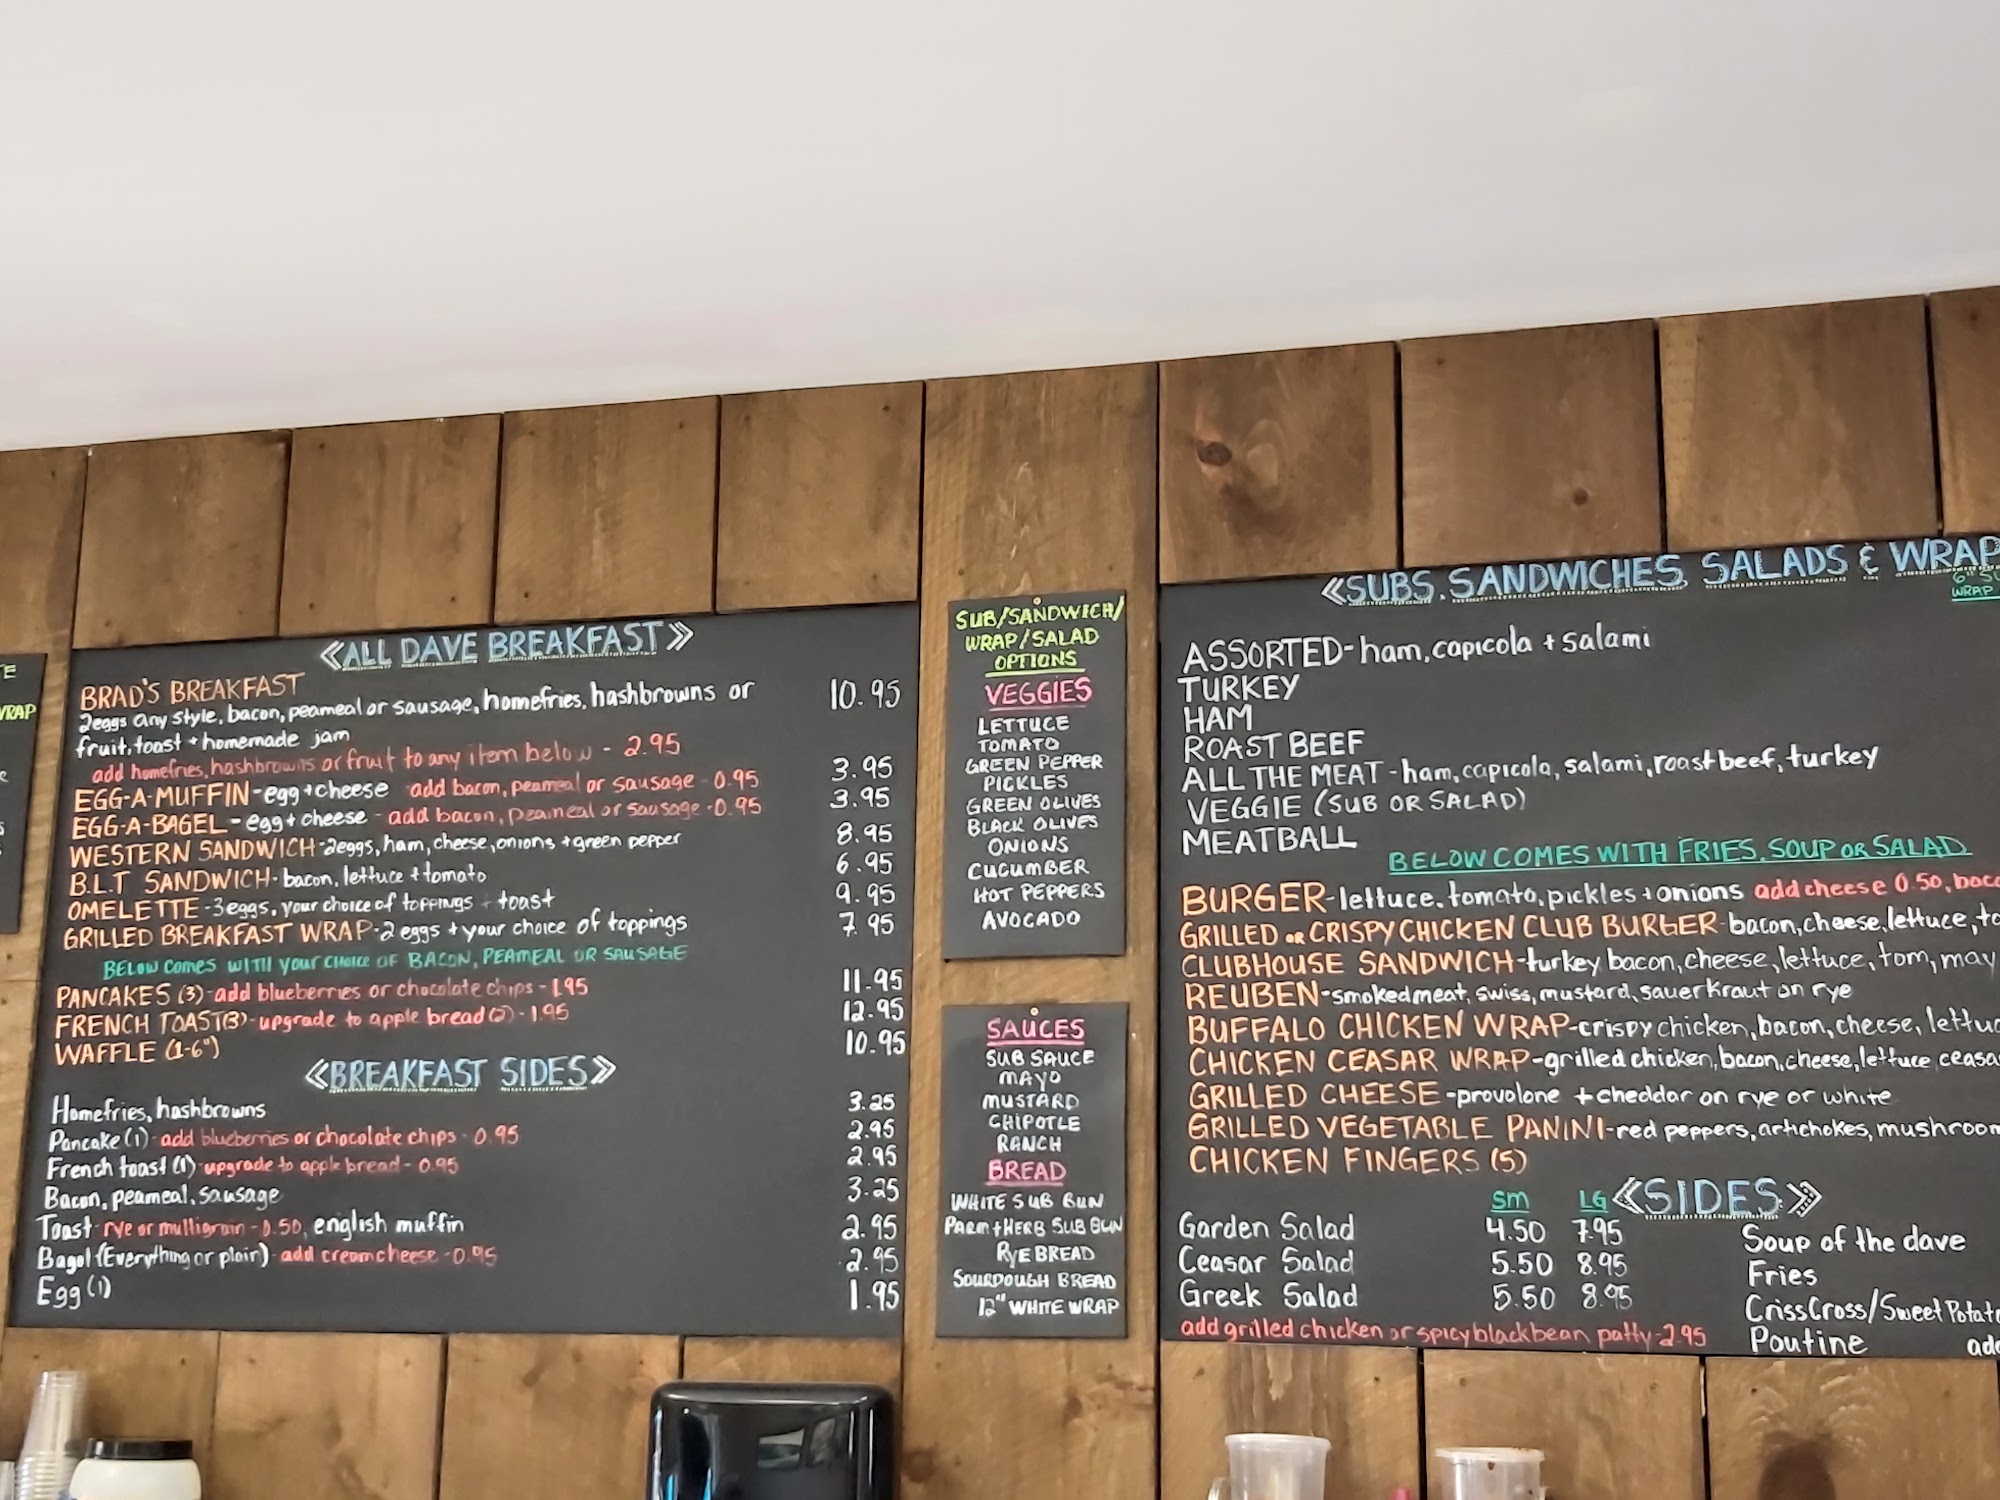 TE
WRAP
«ALL DAVE BREAKFAST»
BRAD'S BREAKFAST 10.95
2eggs any style, bacon, peameal or sausage, homefries, hashbrowns or
fruit, toast + homemade jam
add homefries, hashbrowns or fruit to any item below - 2.95
EGG-A-MUFFIN - egg + cheese add bacon, peameal or sausage - 0.95 3.95
EGG-A-BAGEL - egg + cheese - add bacon, peameal or sausage - 0.95 3.95
WESTERN SANDWICH - 2eggs, ham, cheese, onions + green pepper 8.95
B.L.T SANDWICH - bacon, lettuce + tomato 6.95
OMELETTE - 3eggs, your choice of toppings + toast 9.95
GRILLED BREAKFAST WRAP - 2 eggs + your choice of toppings 7.95
BELOW COMES WITH YOUR CHOICE OF BACON, PEAMEAL OR SAUSAGE
PANCAKES (3) - add blueberries or chocolate chips - 1.95 11.95
FRENCH TOAST (3) - upgrade to apple bread (2) - 1.95 12.95
WAFFLE (1-6") 10.95
«BREAKFAST SIDES»
Homefries, hashbrowns 3.25
Pancake (1) - add blueberries or chocolate chips - 0.95 2.95
French toast (1) - upgrade to apple bread - 0.95 2.95
Bacon, peameal, sausage 3.25
Toast - rye or multigrain - 0.50, english muffin 2.95
Bagel (Everything or plain) - add creamcheese - 0.95 2.95
Egg (1) 1.95
SUB/SANDWICH/
WRAP/SALAD
OPTIONS
VEGGIES
LETTUCE
TOMATO
GREEN PEPPER
PICKLES
GREEN OLIVES
BLACK OLIVES
ONIONS
CUCUMBER
HOT PEPPERS
AVOCADO
SAUCES
SUB SAUCE
MAYO
MUSTARD
CHIPOTLE
RANCH
BREAD
WHITE SUB BUN
PARM + HERB SUB BUN
RYE BREAD
SOURDOUGH BREAD
12" WHITE WRAP
«SUBS, SANDWICHES, SALADS & WRAP
6" SU
WRAP
ASSORTED - ham, capicola + salami
TURKEY
HAM
ROAST BEEF
ALL THE MEAT - ham, capicola, salami, roast beef, turkey
VEGGIE (SUB OR SALAD)
MEATBALL
BELOW COMES WITH FRIES, SOUP OR SALAD
BURGER - lettuce, tomato, pickles + onions add cheese 0.50, baco
GRILLED OR CRISPY CHICKEN CLUB BURGER - bacon, cheese, lettuce, to
CLUBHOUSE SANDWICH - turkey bacon, cheese, lettuce, tom, may
REUBEN - smokedmeat, swiss, mustard, sauerkraut on rye
BUFFALO CHICKEN WRAP - crispy chicken, bacon, cheese, lettuc
CHICKEN CEASAR WRAP - grilled chicken, bacon, cheese, lettuce ceasa
GRILLED CHEESE - provolone + cheddar on rye or white
GRILLED VEGETABLE PANINI - red peppers, artichokes, mushroom
CHICKEN FINGERS (5)
SM LG «SIDES»
Garden Salad 4.50 7.95
Ceasar Salad 5.50 8.95
Greek Salad 5.50 8.95
add grilled chicken or spicy blackbean patty - 2.95
Soup of the dave
Fries
CrissCross/Sweet Potato
Poutine add